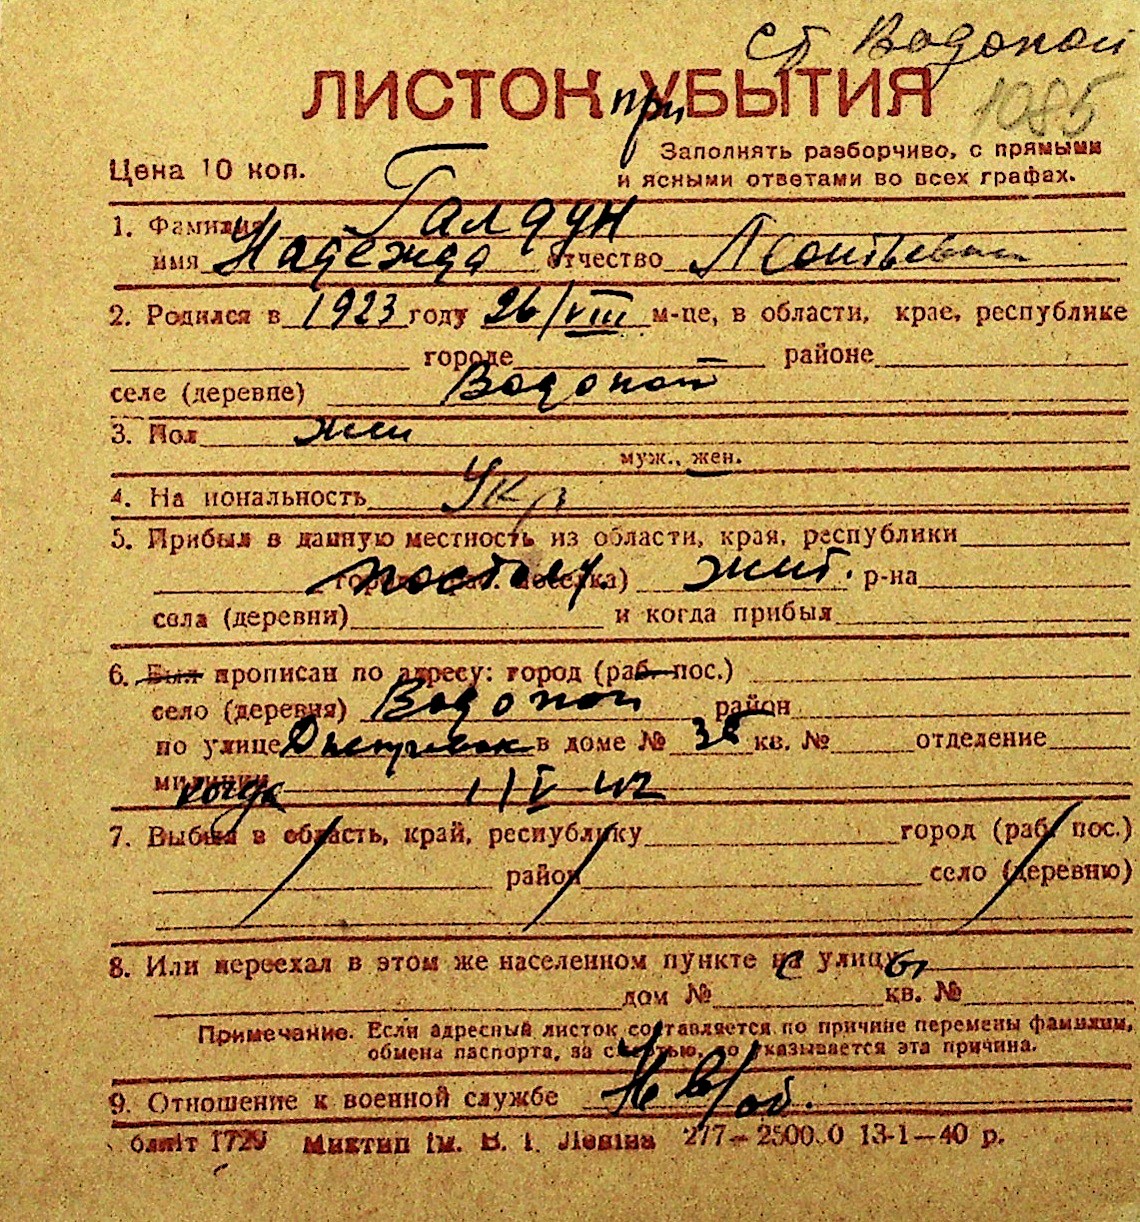 ст Водопой
ЛИСТОК при УБЫТИЯ
1085
Цена 10 коп.
Заполнять разборчиво, с прямыми
и ясными ответами во всех графах.
1. Фамилия Галдун
имя Надежда отчество Леонтьевна
2. Родился в 1923 году 26/VIII м-це, в области, крае, республике
городе районе
селе (деревне) Водопой
3. Пол жен
муж., жен.
4. На иональность Укр
5. Прибыл в данную местность из области, края, республики
город (раб. поселка) жит. р-на
села (деревни) и когда прибыл
6. Был прописан по адресу: город (раб. пос.)
село (деревня) Водопой район
по улице в доме № 38 кв. № отделение
милиции когда 1/V 42
7. Выбыл в область, край, республику город (раб. пос.)
район село (деревню)
8. Или переехал в этом же населенном пункте на с улицу ы
дом № кв. №
Примечание. Если адресный листок составляется по причине перемены фамилии,
обмена паспорта, за смертью, то указывается эта причина.
9. Отношение к военной службе Не в/об.
облліт 1729 Миктип ім. В. І. Леніна 277—2500.0 13-1—40 р.